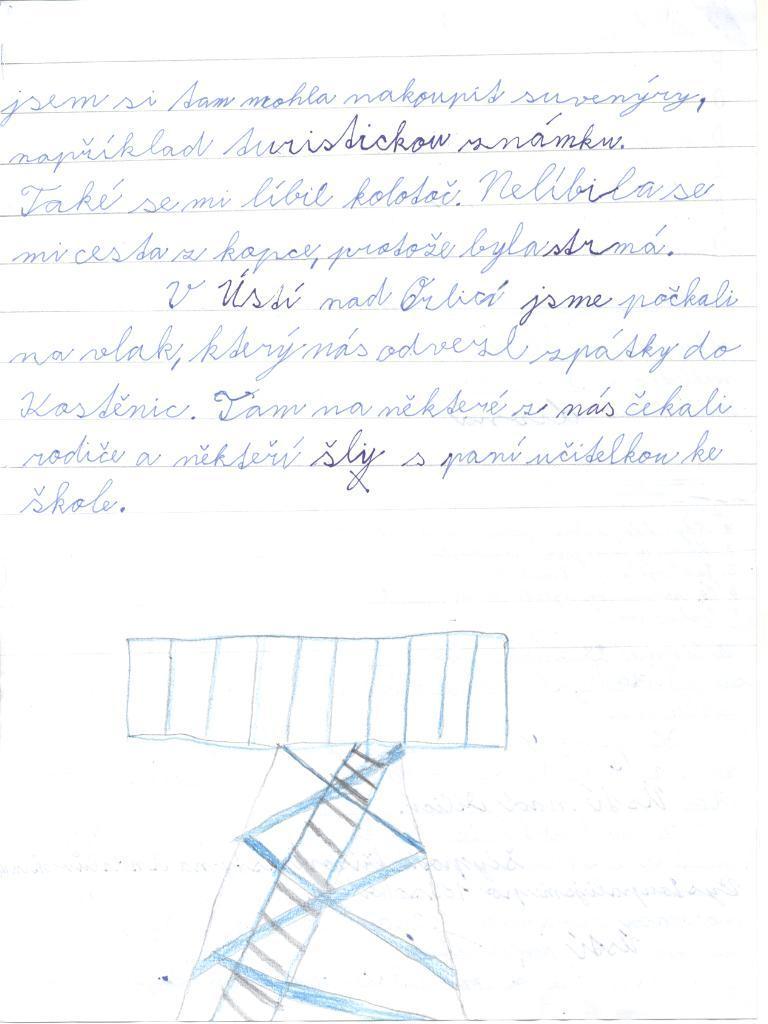 jsem si tam mohla nakoupit suvenýry,
například turistickou známku.
Také se mi líbil kolotoč. Nelíbila se
mi cesta z kopce, protože byla strmá.
V Ústí nad Orlicí jsme počkali
na vlak, který nás odvezl zpátky do
Kostěnic. Tam na některé z nás čekali
rodiče a někteří šly s paní učitelkou ke
škole.